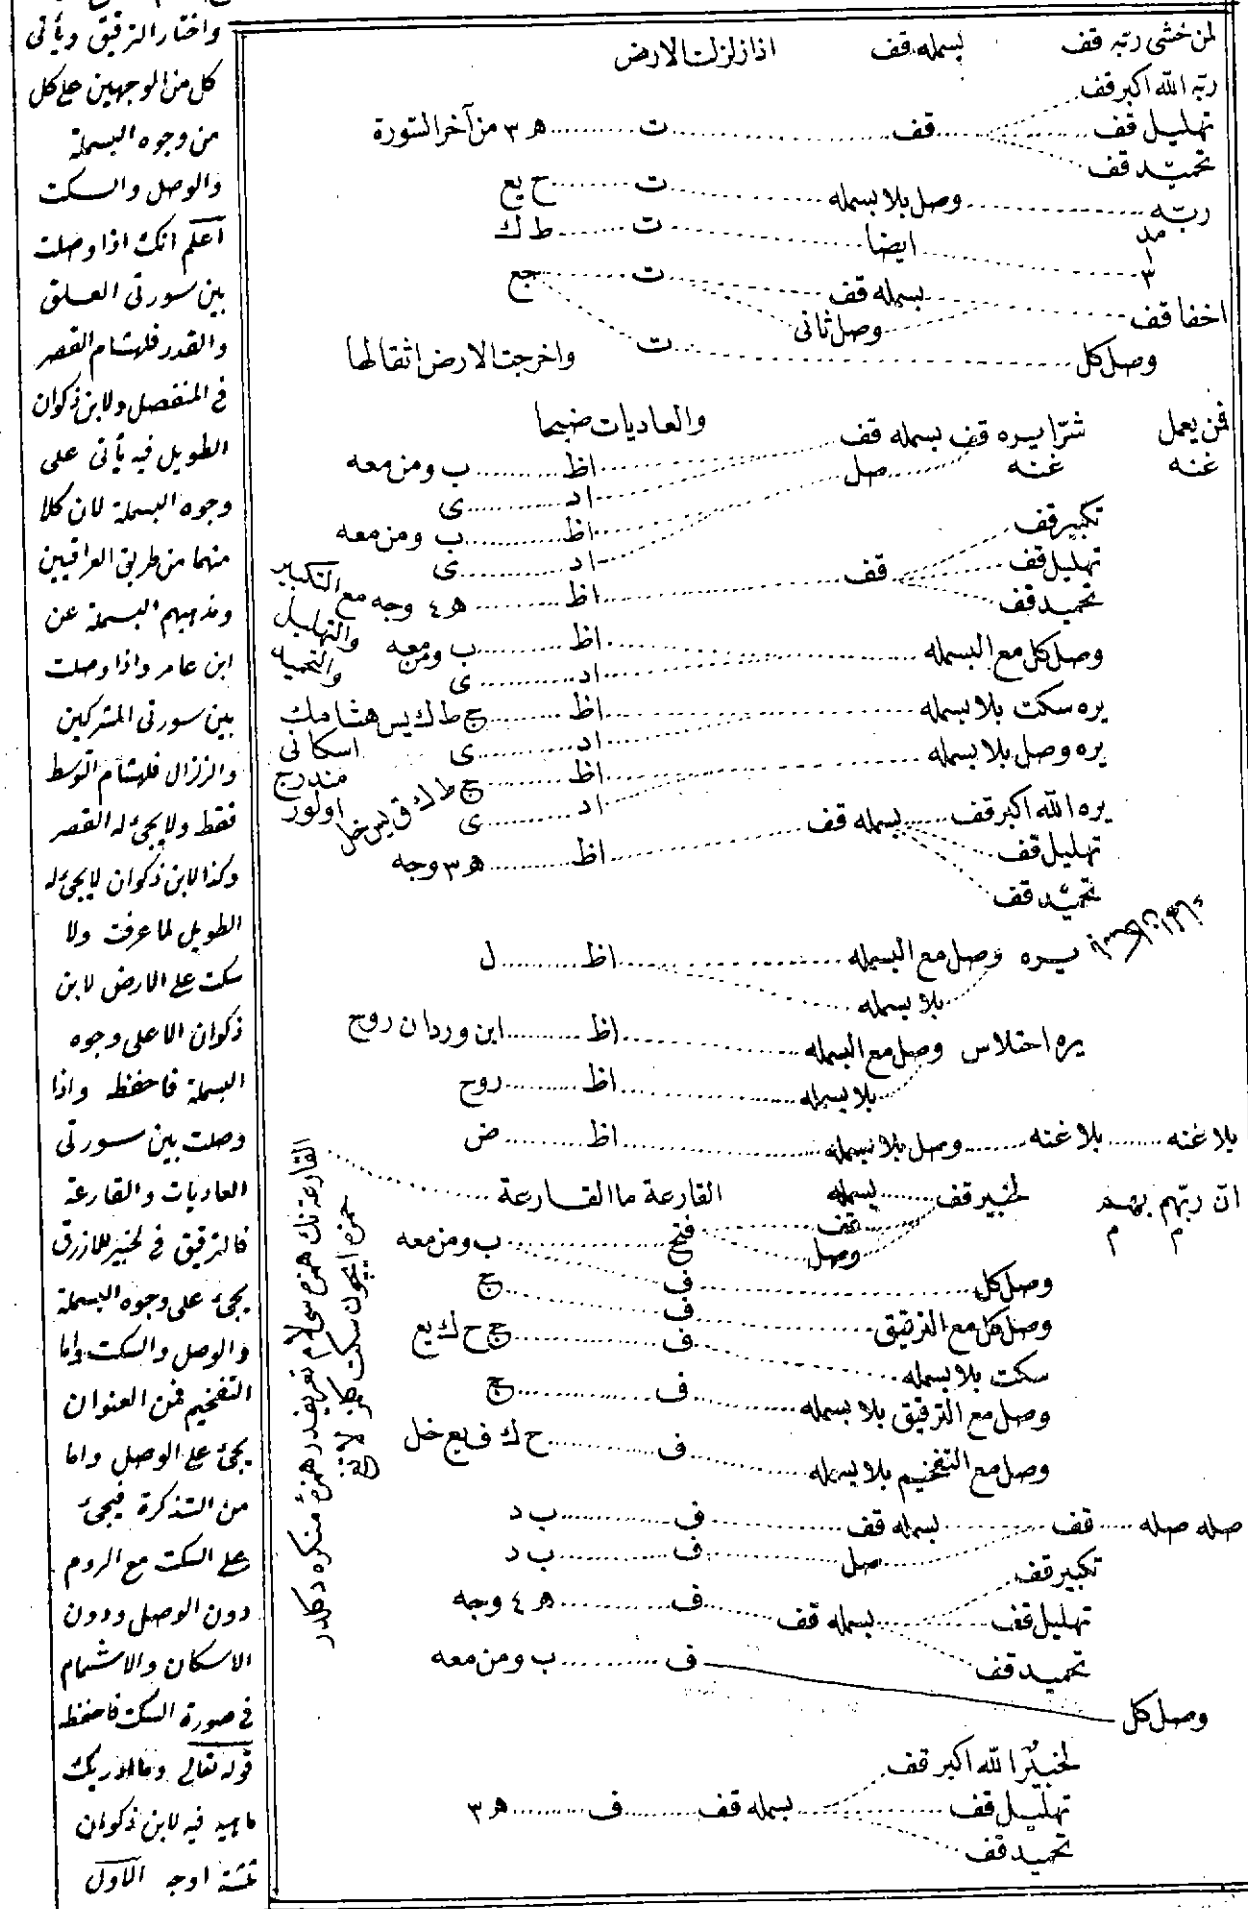 لمن خشى ربّه قف بسمله قف اذا زلزلت الارض
ربّه الله اكبر قف
تهليل قف قف ت ھ ٣ من آخر السّورة
تحميد قف
ربّه وصل بلا بسمله ت ح يع
مد ٣ ايضا ت ط ك
اخفا قف بسمله قف ت جع
وصل ثانى
وصل كل ت واخرجت الارض اثقالها
فمن يعمل شرّا يره قف بسمله قف والعاديات ضبحا
غنه غنه صل اظ ب ومن معه
اد ى
اظ ب ومن معه
اد ى
تكبير قف
تهليل قف قف اظ ھ ٤ وجه مع التكبير والتهليل والتحميد
تحميد قف
وصل كل مع البسمله اظ ب ومن معه
اد ى
يره سكت بلا بسمله اظ ج ط ك يس هشامك اسكانى مندرج اولور
اد ى
يره وصل بلا بسمله اظ ج ط ك ق يس خل
اد ى
يره الله اكبر قف بسمله قف
تهليل قف اظ ھ ٣ وجه
تحميد قف
يره وصل مع البسمله اظ ل
بلا بسمله
يره اختلاس وصل مع البسمله اظ ابن وردان روح
بلا بسمله اظ روح
بلا غنه بلا غنه وصل بلا بسمله اظ ض
ان ربّهم بهم لخبير قف بسمله القارعة ما القارعة
م م قف فتح ب ومن معه
وصل
وصل كل ف ج
وصل كل مع الترقيق ف
سكت بلا بسمله ف ج ح ك يع
وصل مع الترقيق بلا بسمله ف ج
وصل مع التفخيم بلا بسمله ف ح ك ف يع خل
صله صله قف بسمله قف ف ب د
صل ف ب د
تكبير قف
تهليل قف بسمله قف ف ھ ٤ وجه
تحميد قف
وصل كل ف ب ومن معه
لخبيرٌ الله اكبر قف
تهليل قف بسمله قف ف ھ ٣
تحميد قف
واختار الترقيق ويأتى
كل من الوجهين على كل
من وجوه البسملة
والوصل والسكت
اعلم انك اذا وصلت
بين سورتى العلق
والقدر فلهشام القصر
فى المنفصل ولابن ذكوان
الطويل فيه يأتى على
وجوه البسملة لان كلا
منهما من طريق العراقيين
ومذهبهم البسملة عن
ابن عامر واذا وصلت
بين سورتى المشركين
والزلزال فلهشام التوسط
فقط ولا يجئ له القصر
وكذا لابن ذكوان لا يجئ له
الطويل لما عرفت ولا
سكت على الارض لابن
ذكوان الا على وجوه
البسملة فاحفظه واذا
وصلت بين سورتى
العاديات والقارعة
فالترقيق فى لخبير للازرق
يجئ على وجوه البسملة
والوصل والسكت واما
التفخيم فمن العنوان
يجئ على الوصل واما
من التذكرة فيجئ
على السكت مع الروم
دون الوصل ودون
الاسكان والاشمام
فى صورة السكت فاحفظه
قوله تعالى وما ادريك
ماهيه فيه لابن ذكوان
ثلثة اوجه الاول